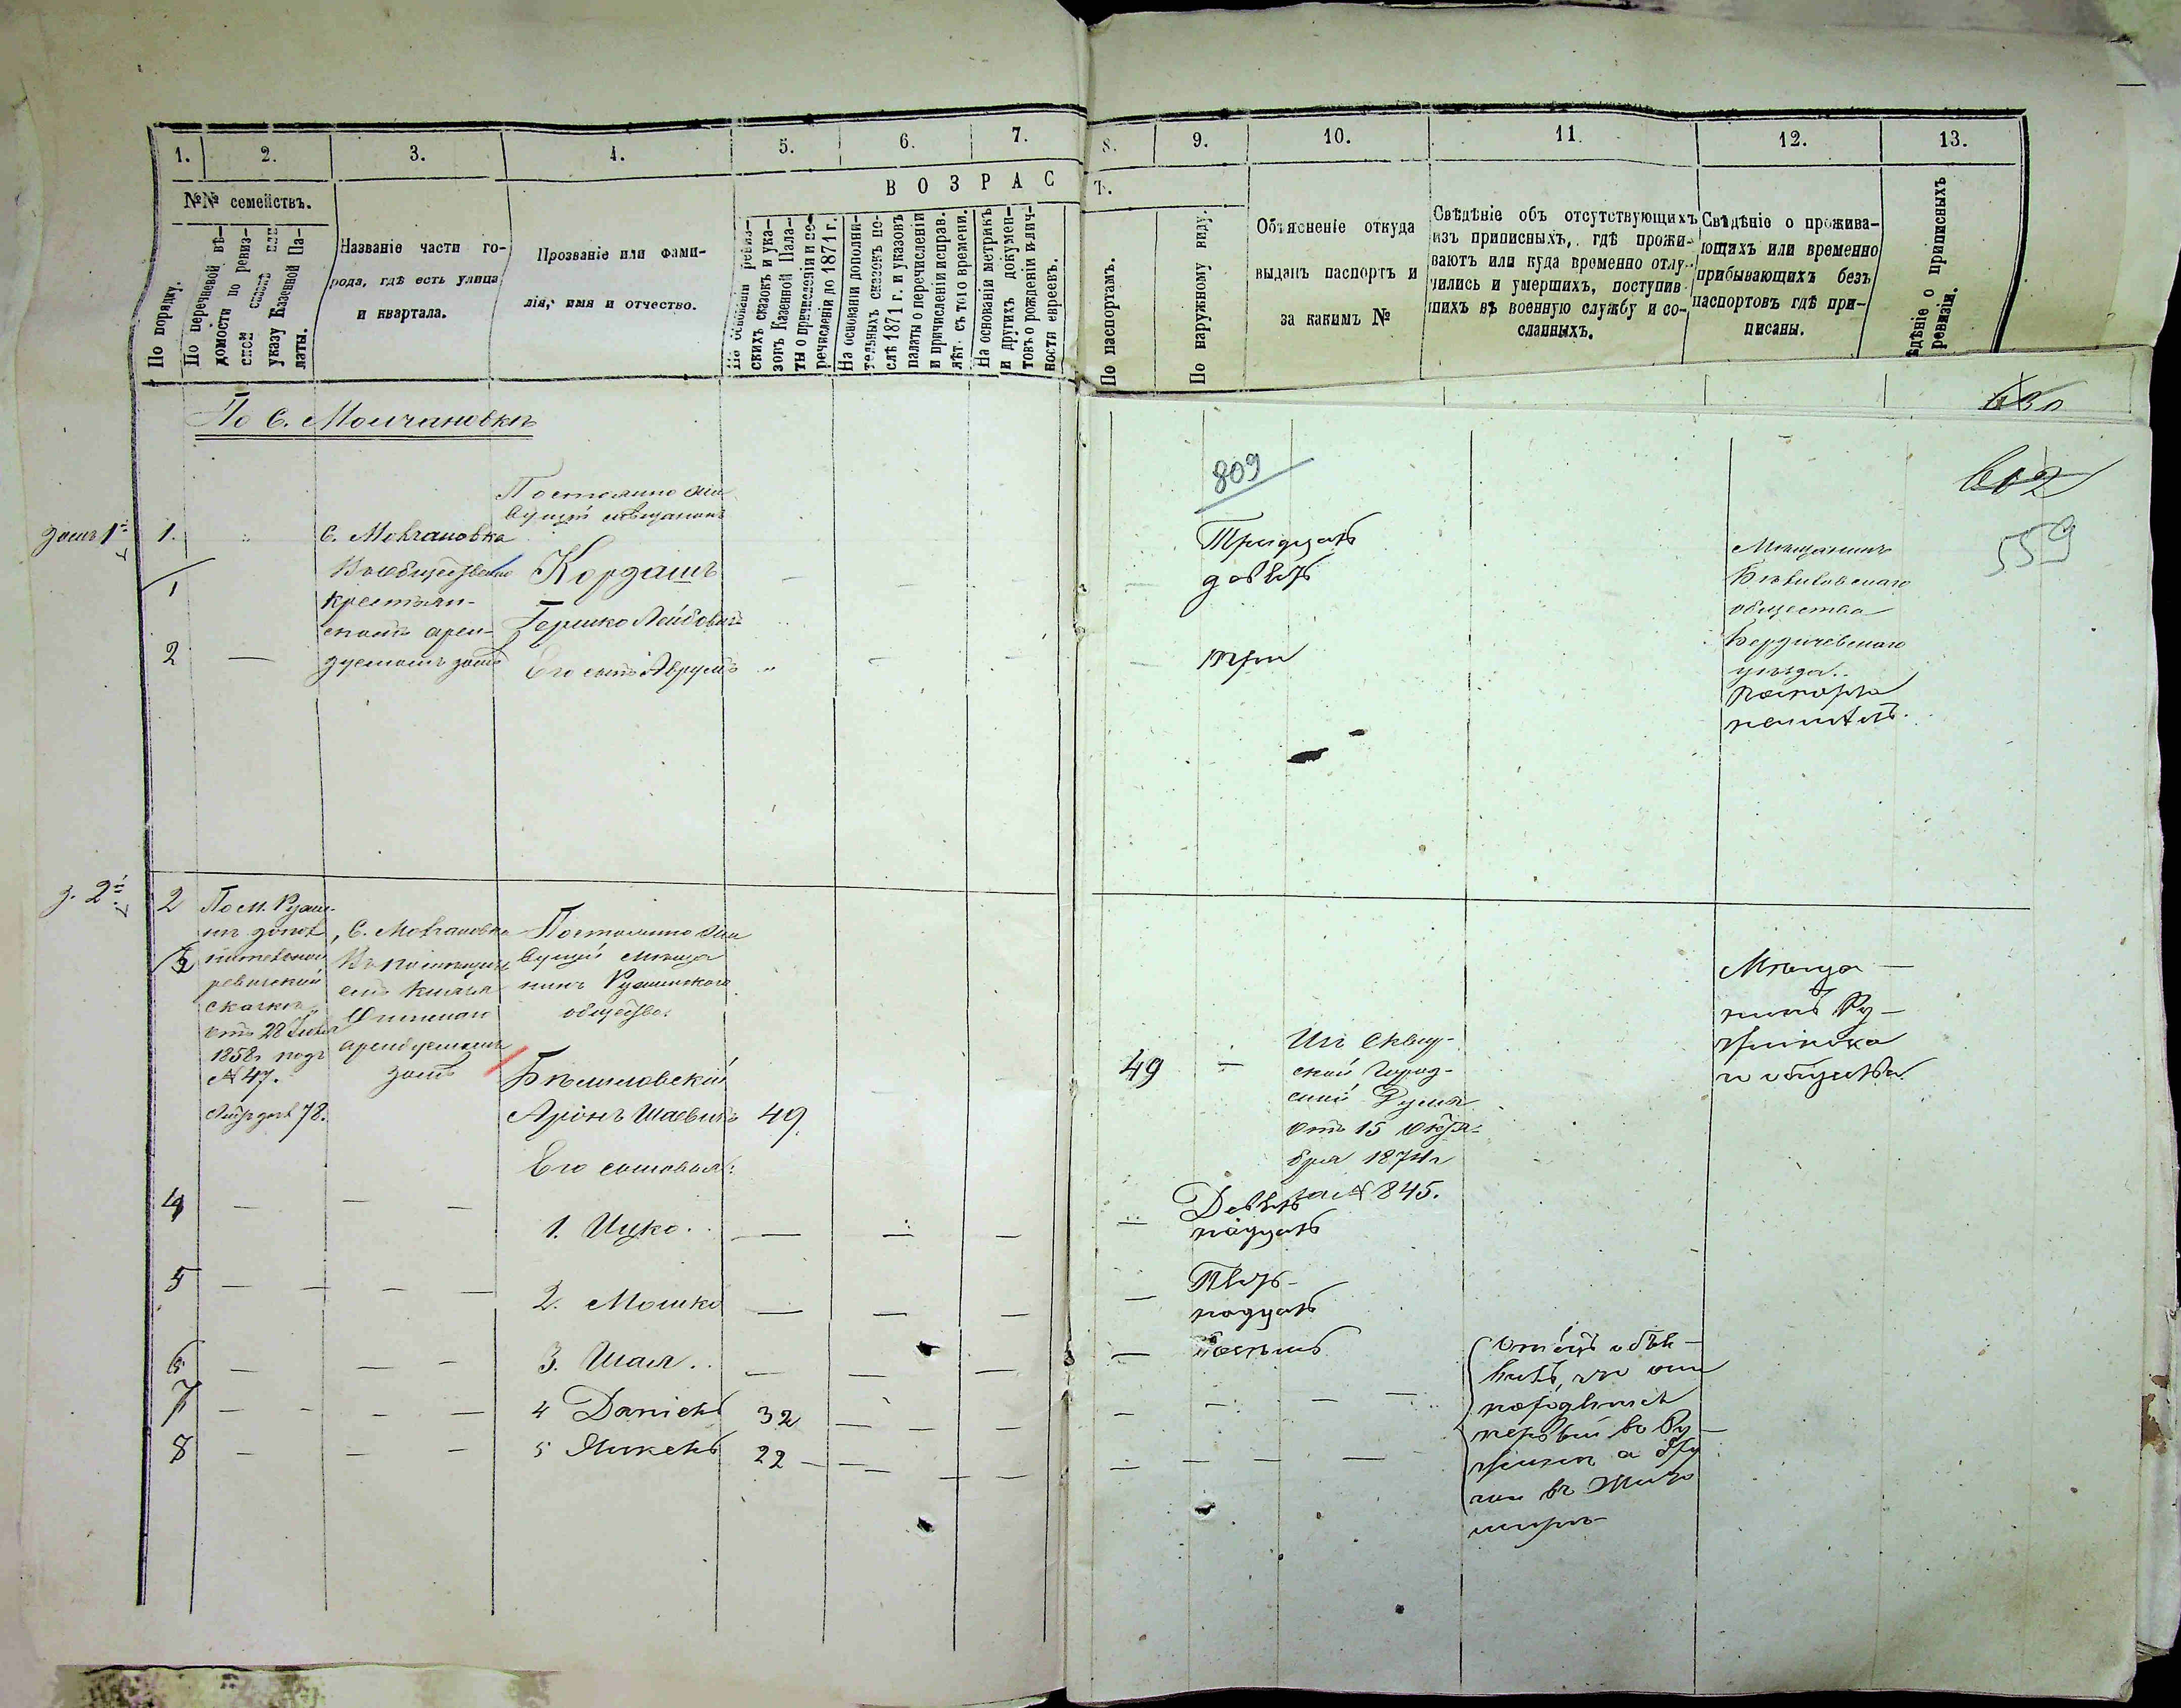 1. 2. 3. 4. 5. 6. 7. 8. 9. 10. 11. 12. 13.
№№ семействъ.
ВОЗРАСТ.
По порядку.
По перечневой вѣ-
домости по ревиз-
ской
указу Казенной Па-
латы.
Названіе части го-
рода, гдѣ есть улица
и квартала.
Прозваніе или фами-
лія, имя и отчество.
ревиз-
скихъ сказокъ и ука-
зовъ Казенной Пала-
ты о причисленіи и пе-
речисленіи до 1871 г.
На основаніи дополни-
тельныхъ сказокъ по-
слѣ 1871 г. и указовъ
палаты о перечисленіи
и причисленіи исправ.
лѣт. съ того времени.
На основаніи метрикъ
и другихъ докумен-
товъ о рожденіи и лич-
ности евреевъ.
По паспортамъ.
По наружному виду.
Объясненіе откуда
выданъ паспортъ и
за какимъ №
Свѣдѣніе объ отсутствующихъ
изъ приписныхъ, гдѣ прожи-
ваютъ или куда временно отлу-
чились и умершихъ, поступив-
шихъ въ военную службу и со-
сланныхъ.
Свѣдѣніе о прожива-
ющихъ или временно
прибывающихъ безъ
паспортовъ гдѣ при-
писаны.
ѣдѣніе о приписныхъ
ревизіи.
По С. Молчановкѣ
809
559
домъ 1й
1.
1
2
С. Молчановка
Въ общественно
крестьян-
скомъ арен-
дуемомъ домѣ
Постоянно жи
вущій мѣщанинъ
Кордашъ
Гершко Лейбовичъ
Его сынъ Аврумъ
Тридцать
девять
три
Мѣщанинъ
общества
Бердичевскаго
уѣзда.
паспорта
неимѣетъ.
д. 2й
2
По м. Ружи-
нѣ допол
нительной
ревизской
сказки
отъ 28 Іюня
1858г подъ
№ 47.
78.
С. Молчановка
арендуемомъ
домѣ
Постоянно жи
вущій мѣща
нинъ Ружинскаго
общества
Бѣлиловскій
Аронъ Шаевичъ 49.
49
Его сыновья:
Изъ Сквир-
ской Город-
ской Думы
отъ 15 Октя-
бря 1874г
за № 845.
Мѣща-
нинъ Ру-
жинска
го общества
4 1. Ицко. Девят
надцать
5 2. Мошко Пят-
надцать
6 3. Шая. восемь
7 4 Даніель 32
8 5 Янкель 22
Отецъ объя-
вилъ, что они
находятся
первый въ Ру-
жинѣ а дру
гой въ Жито
мирѣ